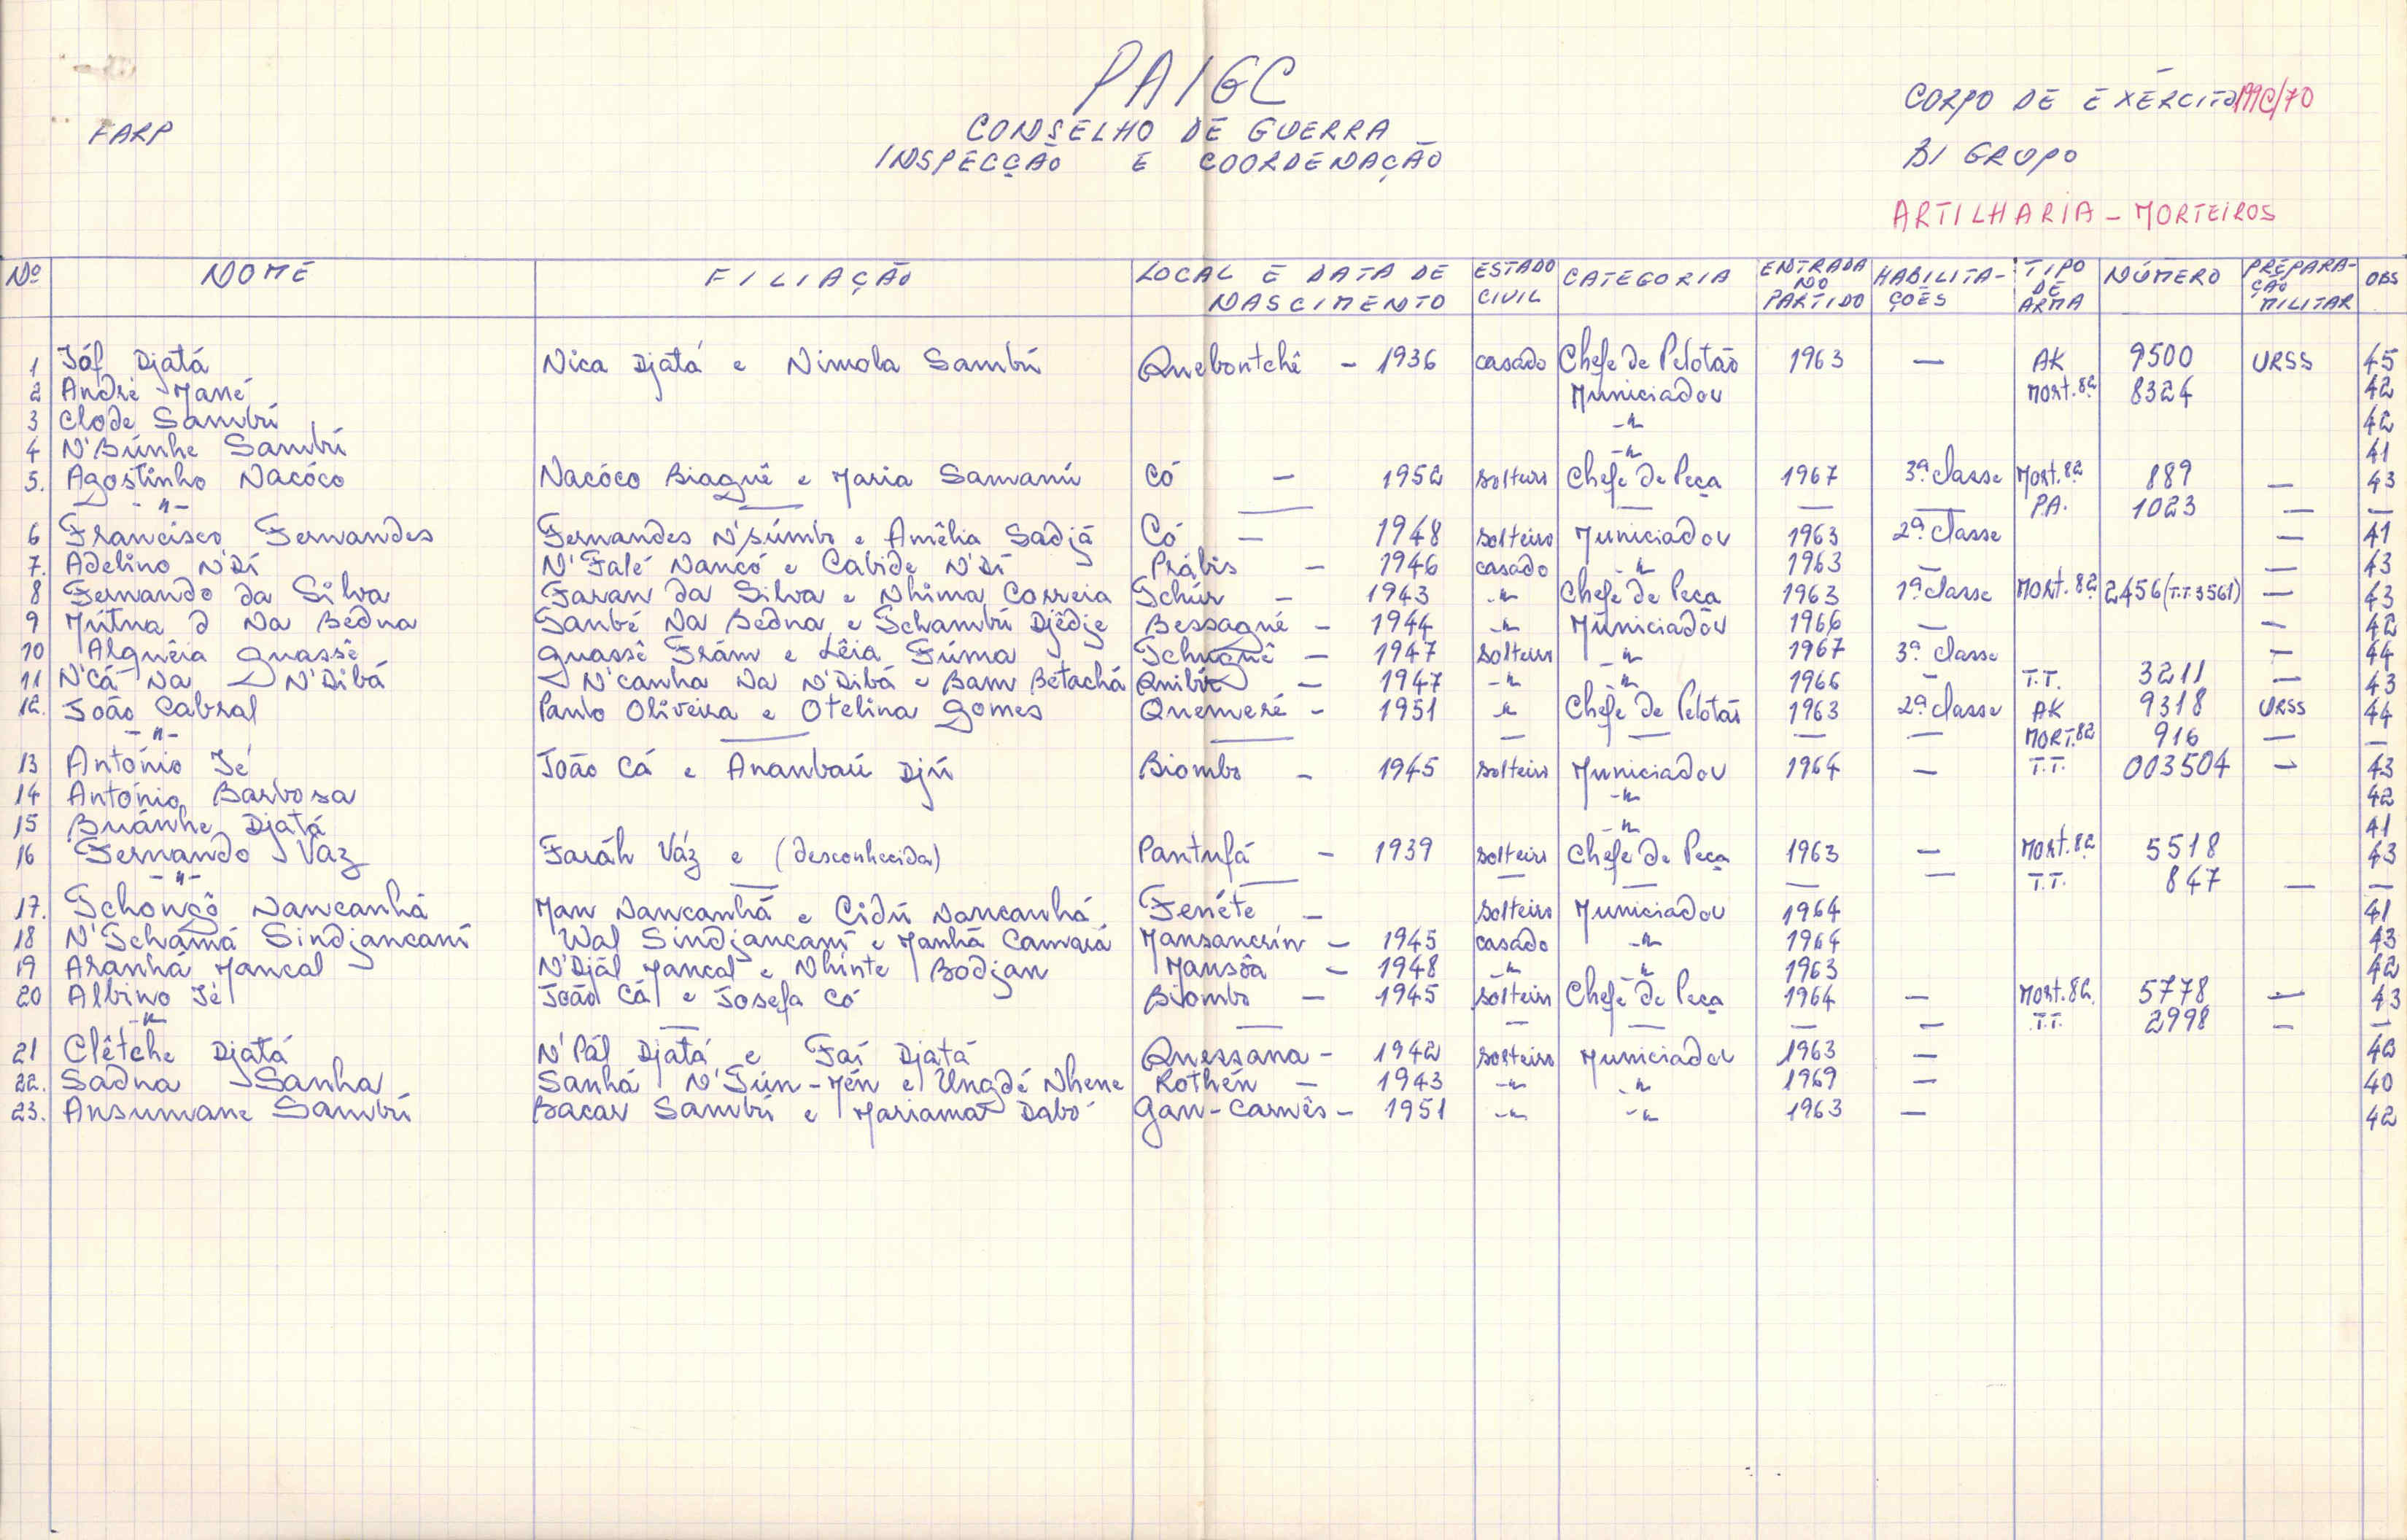 PAIGC
FARP
CONSELHO DE GUERRA
INSPECÇÃO E COORDENAÇÃO
CORPO DE EXÉRCITO 199C/70
BI GRUPO
ARTILHARIA - MORTEIROS
Nº NOME FILIAÇÃO LOCAL E DATA DE NASCIMENTO ESTADO CIVIL CATEGORIA ENTRADA NO PARTIDO HABILITAÇÕES TIPO DE ARMA NÚMERO PREPARAÇÃO MILITAR OBS
1 Jóf Djatá Nica Djatá e Nimola Sambú Quebontchê - 1936 casado Chefe de Pelotão 1963 — AK 9500 URSS 45
2 André Mané Municiador Mort.82 8324 42
3 Clode Sambú -"- 42
4 N'Búnhe Sambú -"- 41
5. Agostinho Nacóco Nacóco Biaguê e Maria Samanú Có - 1952 solteiro Chefe de Peça 1967 3ª classe Mort.82 889 — 43
-"- — — — — P.A. 1023 — —
6 Francisco Fernandes Fernandes N'súmbo e Amélia Sadjá Có - 1948 solteiro Municiador 1963 2ª classe — 41
7. Adelino N'Dí N'Falé Nancó e Cabide N'Dí Prábis - 1946 casado -"- 1963 — — 43
8 Fernando da Silva Faran da Silva e Nhima Correia Tchúr - 1943 -"- Chefe de Peça 1963 1ª classe Mort.82 2456 (T.T.3561) — 43
9 Mútna d Na Bédna Sanbé Na Bédna e Tchambú Djêdje Bessagué - 1944 -"- Municiador 1966 — — 42
10 Alguêia Guassê Guassê Frám e Lêia Fúma Tchuguê - 1947 solteiro -"- 1967 3ª classe — 44
11 N'Cá Na N'Dibá N'canha Na N'Dibá e Bam Betachá Quibir - 1947 -"- -"- 1966 — T.T. 3211 — 43
12. João Cabral Paulo Oliveira e Otelina Gomes Quemeré - 1951 -"- Chefe de Pelotão 1963 2ª classe AK 9318 URSS 44
-"- — — — — — — MORT.82 916 — —
13 António Jé João Cá e Ananbaú Djú Biombo - 1945 solteiro Municiador 1964 — T.T. 003504 — 43
14 António Barbosa -"- 42
15 Buánhe Djatá -"- 41
16 Fernando Váz Faráh Váz e (desconhecida) Pantufá - 1939 solteiro Chefe de Peça 1963 — Mort.82 5518 43
-"- — — — — — — T.T. 847 — —
17. Tchongô Nancanhá Man Nancanhá e Cidú Nancanhá Fenéte - solteiro Municiador 1964 41
18 N'Tchamá Sindjancaní Wal Sindjancaní e Manhá Camará Mansancrín - 1945 casado -"- 1964 43
19 Aranhá Mancal N'Djál Mancal e Nhinte Bodjan Mansôa - 1948 -"- -"- 1963 42
20 Albino Jé João Cá e Josefa Có Biombo - 1945 solteiro Chefe de Peça 1964 — Mort.82. 5778 — 43
-"- — — — — — — T.T. 2998 — —
21 Clêtche Djatá N'Pál Djatá e Faí Djatá Quessana - 1942 solteiro Municiador 1963 — 42
22. Sadna Sanha Sanhá N'Tún-Mén e Ungdé Nhene Rothén - 1943 -"- -"- 1969 — 40
23. Ansumane Sambú Bacar Sambú e Mariama Dabó Gan-Carnês - 1951 -"- -"- 1963 — 42